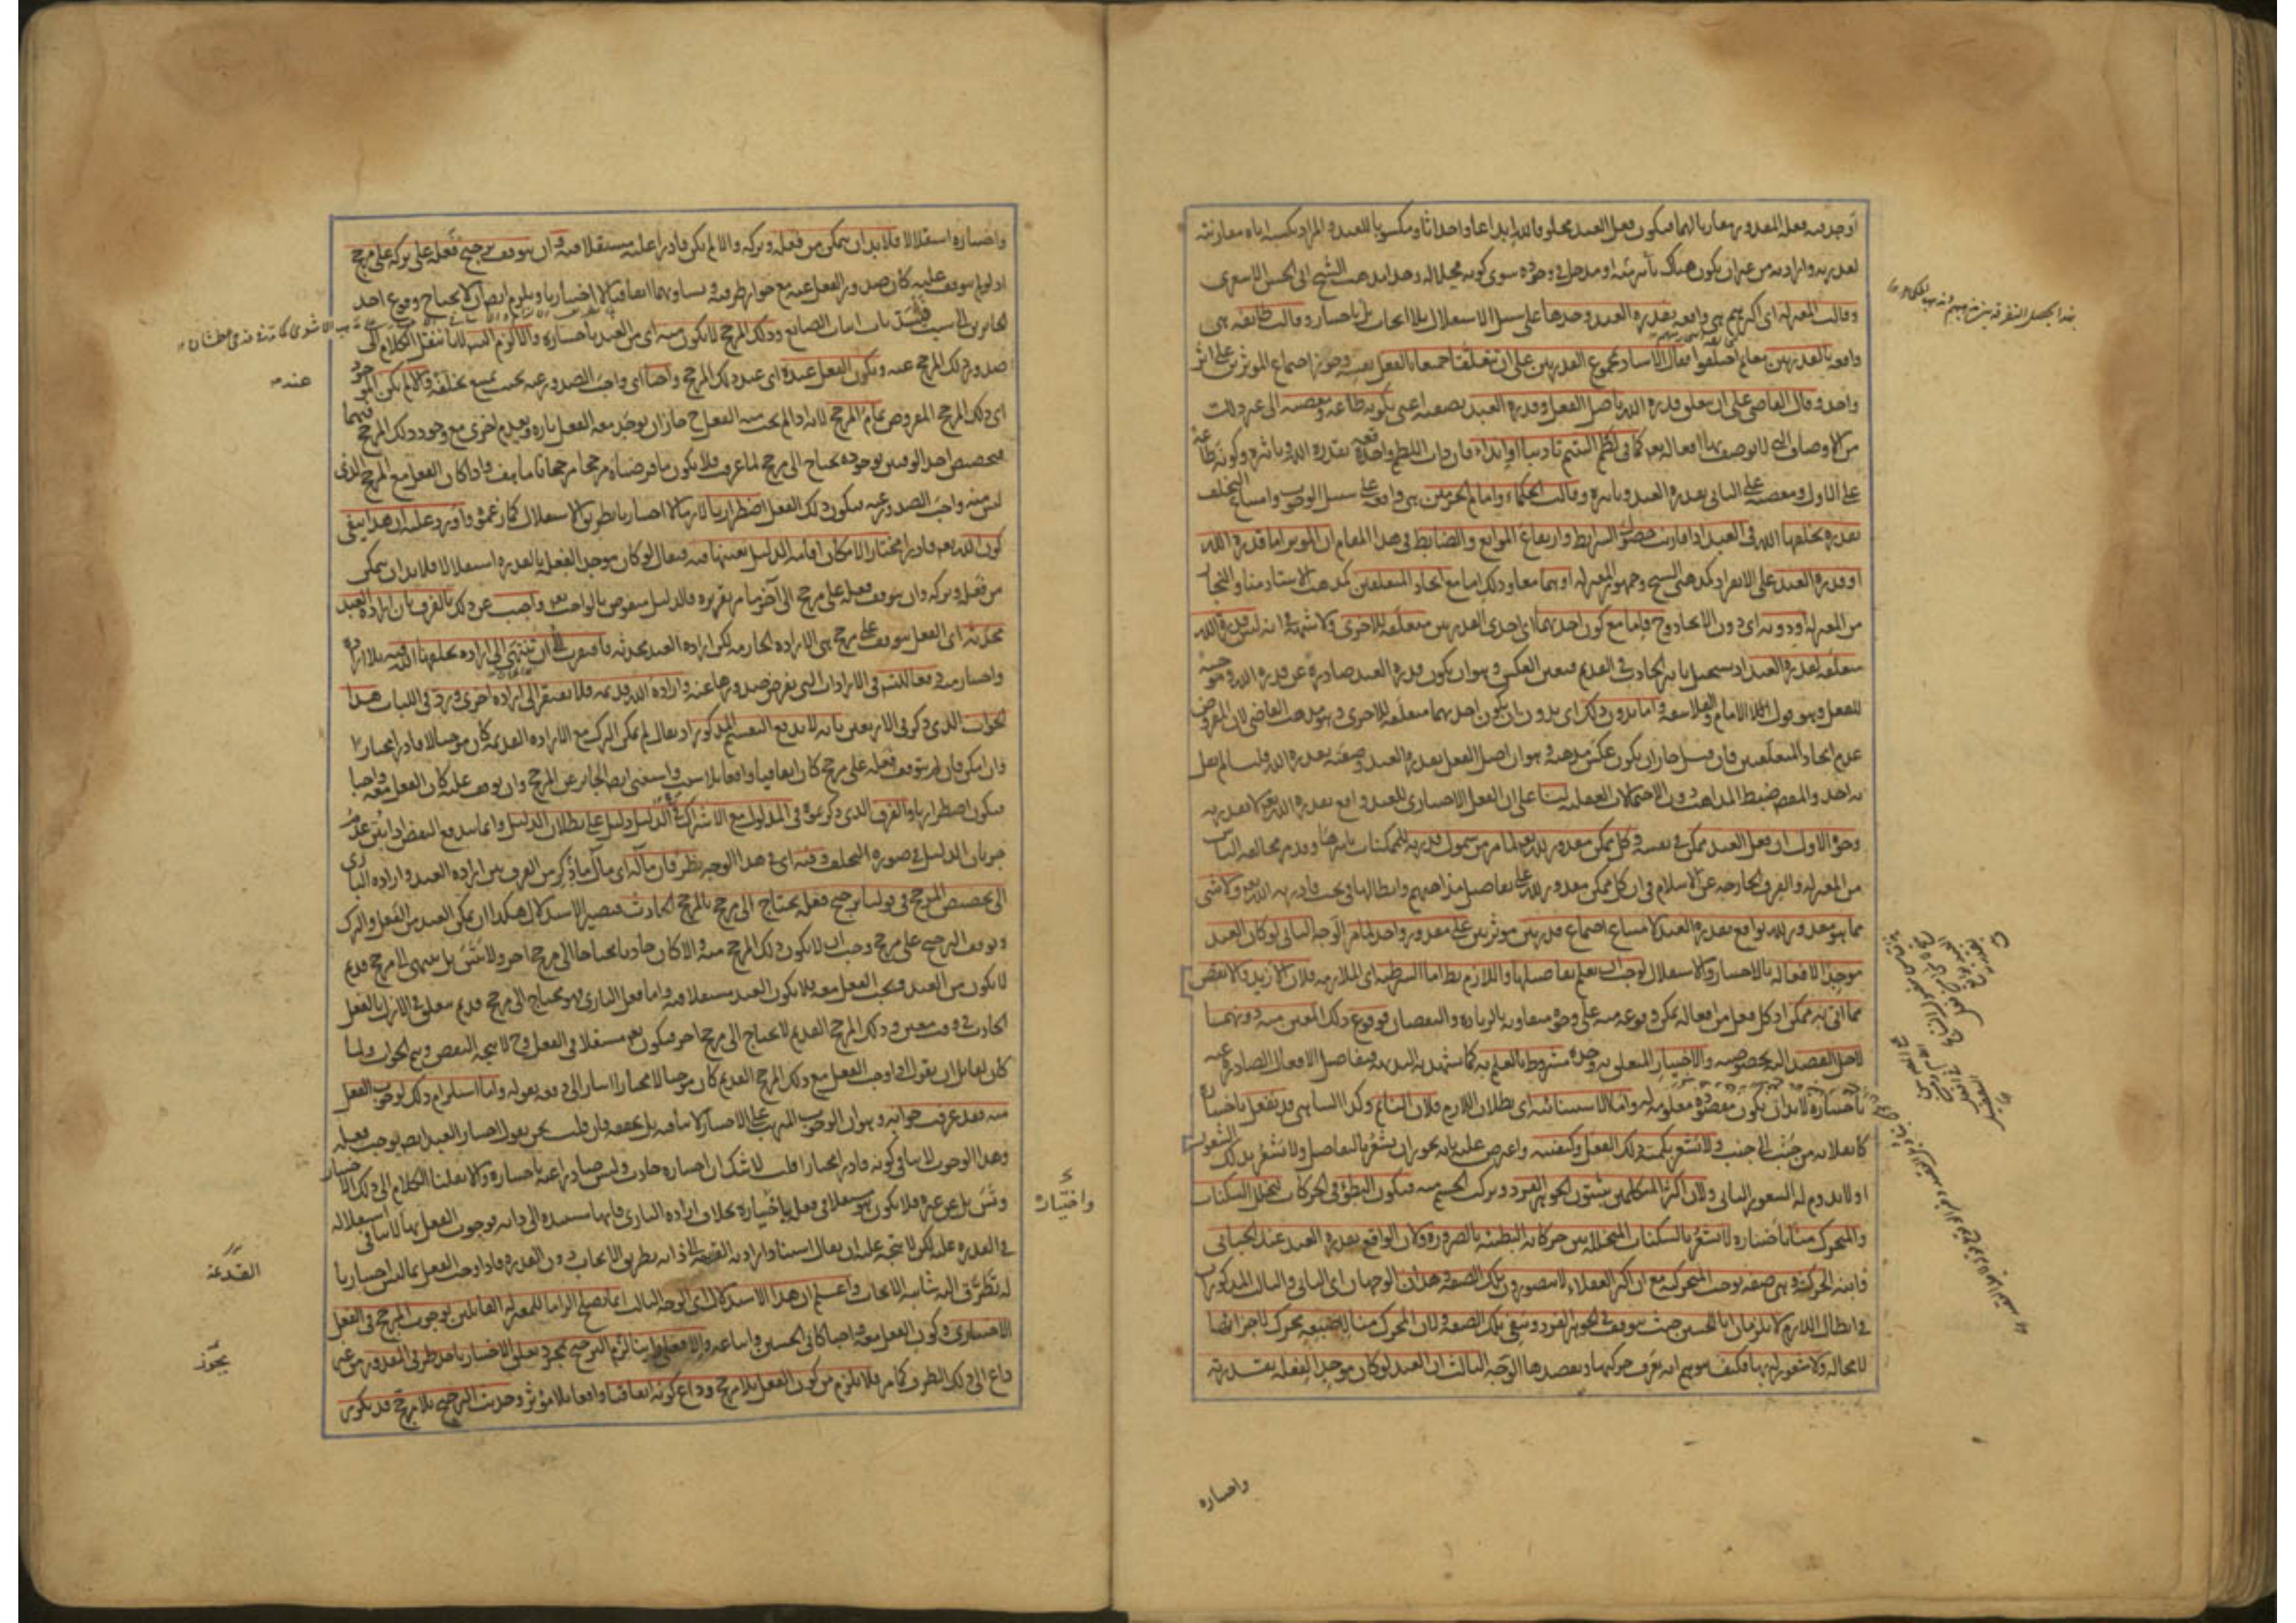 أوجد فيه فعله المقدور مقارنا لهما فيكون فعل العبد مخلوقا لله ابداعا واحداثا ومكسوبا للعبد والمراد بكسبه اياه مقارنته
لقدرته وارادته من غير ان يكون هناك تأثير منه او مدخل في وجوده سوى كونه محلا له وهذا مذهب الشيخ ابى الحسن الاشعرى
وقالت المعتزلة اى اكثرهم هى واقعة بقدرة العبد وحدها على سبيل الاستقلال بلا ايجاب بل باختيار وقالت طائفة هى
واقعة بالقدرتين معا ثم اختلفوا فقال الاستاد بمجموع القدرتين على ان تتعلقا جميعا بالفعل نفسه وجوز اجتماع المؤثرين على اثر
واحد وقال القاضى على ان يتعلق قدرة الله باصل الفعل وقدرة العبد بصفته اعنى بكونه طاعة ومعصية الى غير ذلك
من الاوصاف التى لا يوصف بها افعاله تعالى كما فى لطم اليتيم تاديبا او ايذاء فان ذات اللطم واقعة بقدرة الله وتاثيره وكونه طاعة
على الاول ومعصية على الثانى بقدرة العبد وتاثيره وقالت الحكماء وامام الحرمين هى واقعة على سبيل الوجوب وامتناع التخلف
بقدرة يخلقها الله فى العبد اذا قارنت حصول الشرايط وارتفاع الموانع والضابط فى هذا المقام ان المؤثر اما قدرة الله
او قدرة العبد على الانفراد كمذهبى الشيخ وجمهور المعتزلة او هما معا وذلك اما مع اتحاد المتعلقين كمذهب الاستاد منا والنجار
من المعتزلة او دونه اى دون الاتحاد وح فاما مع كون احديهما اى احدى القدرتين متعلقة للاخرى ولا شبهة فى انه ليس قدرة الله
متعلقة لقدرة العبد اذ يستحيل تاثير الحادث فى القديم فتعين العكس وهو ان يكون قدرة العبد صادرة عن قدرة الله وموجبة
للفعل وهو قول الامام والفلاسفة واما بدون ذلك اى بدون ان يكون احديهما متعلقة للاخرى وهو مذهب القاضى لان المفروض
عدم اتحاد المتعلقين فان قيل جاز ان يكون عكس مذهبه وهو ان اصل الفعل بقدرة العبد وصفته بقدرة الله قلنا لم يقل
به احد والمقصود ضبط المذاهب دون الاحتمالات العقلية لنا على ان الفعل الاختيارى للعبد واقع بقدرة الله تعالى لا بقدرته
وجوه الاول ان فعل العبد ممكن فى نفسه وكل ممكن مقدور لله تعالى لما مر من شمول قدرته للممكنات باسرها وقد مر مخالفة الناس
من المعتزلة والفرق الخارجة عن الاسلام فى ان كل ممكن مقدور لله على تفاصيل مذاهبهم وابطالها فى بحث قادرية الله تعالى ولا شئ
مما هو مقدور لله بواقع بقدرة العبد لامتناع اجتماع قدرتين مؤثرتين على مقدور واحد لما مر الوجه الثانى لو كان العبد
موجدا لافعاله بالاختيار والاستقلال لوجب ان يعلم تفاصيلها واللازم بط اما الشرطية اى الملازمة فلان الازيد والانقص
مما اتى به ممكن اذ كل فعل من افعاله يمكن وقوعه منه على وجوه متفاوتة بالزيادة والنقصان فوقوع ذلك المعين منه دونهما
لاجل القصد اليه بخصوصه والاختيار المتعلق به وحده مشروط بالعلم به كما تشهد به البديهة فتفاصيل الافعال الصادرة عنه
باختياره لا بد ان يكون مقصودة معلومة له واما الاستثنائية اى بطلان اللازم فلان النائم وكذا الساهى قد يفعل باختياره
كانقلابه من جنب الى جنب ولا يشعر بكمية ذلك الفعل وكيفيته واعترض عليه بانه يجوز ان يشعر بالتفاصيل ولا يشعر بذلك الشعور
او لا يدوم له الشعور الثانى ولان اكثر المتكلمين يثبتون الجوهر الفرد وتركب الجسم منه فيكون البطؤ فى الحركات لتخلل السكنات
والمتحرك منا باختياره لا يشعر بالسكنات المتخللة بين حركاته البطيئة بالضرورة ولان الواقع بقدرة العبد عند الجبائى
وابنه الحركة وهى صفة توجب المتحركية مع ان اكثر العقلاء لا يتصورون تلك الصفة وهذان الوجهان اى الثانى والثالث المذكوران
فى ابطال اللازم لا يلزمان ابا الحسين حيث يتوقف فى الجوهر الفرد وينفى تلك الصفة ولان المحرك منا لاصبعه محرك لاجزائها
لا محالة ولا شعور له بها فكيف يتوهم انه يعرف حركتها ويقصدها الوجه الثالث ان العبد لو كان موجدا لفعله بقدرته
واختياره
واختياره استقلالا فلا بد ان يتمكن من فعله وتركه والا لم يكن قادرا عليه مستقلا فيه وان يتوقف ترجيح فعله على تركه على مرجح
اذ لو لم يتوقف عليه كان صدور الفعل عنه مع جواز طرفيه وتساويهما اتفاقيا لا اختياريا ويلزم ايضا ان لا يحتاج وقوع احد
الجائزين الى سبب فينسد باب اثبات الصانع وذلك المرجح لا يكون منه اى من العبد باختياره والا لزم التسلسل لانا ننقل الكلام الى
صدور ذلك المرجح عنه ويكون الفعل عنده اى عند ذلك المرجح واجبا اى واجب الصدور عنه بحيث يمتنع تخلفه والا لم يكن الموجود
اى ذلك المرجح المفروض تمام المرجح لانه اذا لم يجب منه الفعل ح جاز ان يوجد معه الفعل تارة ويعدم اخرى مع وجود ذلك المرجح فيهما
فتخصيص احد الوقتين بوجوده يحتاج الى مرجح لما عرفت فلا يكون ما فرضناه مرجحا مرجحا تاما هف واذا كان الفعل مع المرجح الذى
ليس منه واجب الصدور عنه فيكون ذلك الفعل اضطراريا لازما لا اختياريا بطريق الاستقلال كما زعموه واورد عليه ان هذا ينفى
كون الله تعالى قادرا مختارا لامكان اقامة الدليل بعينه فيه فيقال لو كان موجد الفعل بالقدرة استقلالا فلا بد ان يتمكن
من فعله وتركه وان يتوقف فعله على مرجح الى آخر ما مر تقريره فالدليل منقوض بالواجب تعالى واجيب عن ذلك بالفرق بان ارادة العبد
محدثة اى الفعل يتوقف على مرجح هى الارادة الجازمة لكن ارادة العبد محدثة فافتقرت الى ان تنتهى الى ارادة يخلقها الله فيه بلا ارادة
واختيار منه دفعا للتسلسل فى الارادات التى يفرض صدورها عنه وارادة الله قديمة فلا يفتقر الى ارادة اخرى ورد فى اللباب هذا
الجواب الذى ذكر فى الاربعين بانه لا يدفع التقسيم المذكور اذ يقال ان لم يمكن الترك مع الارادة القديمة كان موجبا لا قادرا مختارا
وان امكن فان لم يتوقف فعله على مرجح كان اتفاقيا واقعا بلا سبب واستغنى ايضا الجائز عن المرجح وان توقف عليه كان الفعل معه واجبا
فيكون اضطراريا والفرق الذى ذكرتموه فى المدلول مع الاشتراك فى الدليل دليل على بطلان الدليل وانما يندفع النقض اذا بين عدم
جريان الدليل فى صورة التخلف وفيه اى فى هذا الوجه نظر فان مآله اى مآل ما ذكر من الفرق بين ارادة العبد وارادة البارى
الى تخصيص المرجح فى قولنا ترجيح فعله يحتاج الى مرجح بالمرجح الحادث فيصير الاستدلال هكذا ان تمكن العبد من الفعل والترك
وتوقف الترجيح على مرجح وجب ان لا يكون ذلك المرجح منه والا كان حادثا محتاجا الى مرجح آخر ولا يتسلسل بل ينتهى الى مرجح قديم
لا يكون من العبد ويجب الفعل معه فلا يكون العبد مستقلا فيه واما فعل البارى فهو يحتاج الى مرجح قديم متعلق فى الازل بالفعل
الحادث فى وقت معين وذلك المرجح القديم لا يحتاج الى مرجح آخر فيكون تعالى مستقلا فى الفعل وح لا يتجه النقض ويتم الجواب ولما
كان لقائل ان يقول اذا وجب الفعل مع ذلك المرجح القديم كان موجبا لا مختارا اشار الى دفعه بقوله واما استلزام ذلك لوجوب الفعل
منه فقد عرفت جوابه وهو ان الوجوب المترتب على الاختيار لا ينافيه بل يحققه فان قلت نحن نقول اختيار العبد ايضا يوجب فعله
وهذا الوجوب لا ينافى كونه قادرا مختارا قلت لا شك ان اختياره حادث وليس صادرا عنه باختياره والا نقلنا الكلام الى ذلك الاختيار
وتسلسل بل عن غيره فلا يكون هو مستقلا فى فعله باختياره بخلاف ارادة البارى فانها مستندة الى ذاته فوجوب الفعل بها لا ينافى استقلاله
فى القدرة عليه لكن لا يتجه عليه ان يقال استناد ارادته القديمة الى ذاته بطريق الايجاب دون القدرة فاذا وجب الفعل بما ليس اختياريا
له تطرق اليه شائبة الايجاب واعلم ان هذا الاستدلال اى الوجه الثالث انما يصلح الزاما للمعتزلة القائلين بوجوب المرجح فى الفعل
الاختيارى وكون الفعل معه واجبا كابى الحسين واتباعه والا فعلى رأينا الترجيح بمجرد تعلق الاختيار باحد طرفى المقدور من غير
داع الى ذلك الطرف كما مر فلا يلزم من كون الفعل بلا مرجح وداع كونه اتفاقيا واقعا بلا مؤثر وحديث الترجيح بلا مرجح قد تكرر
عنده
واختياره
القديمة
يجوز